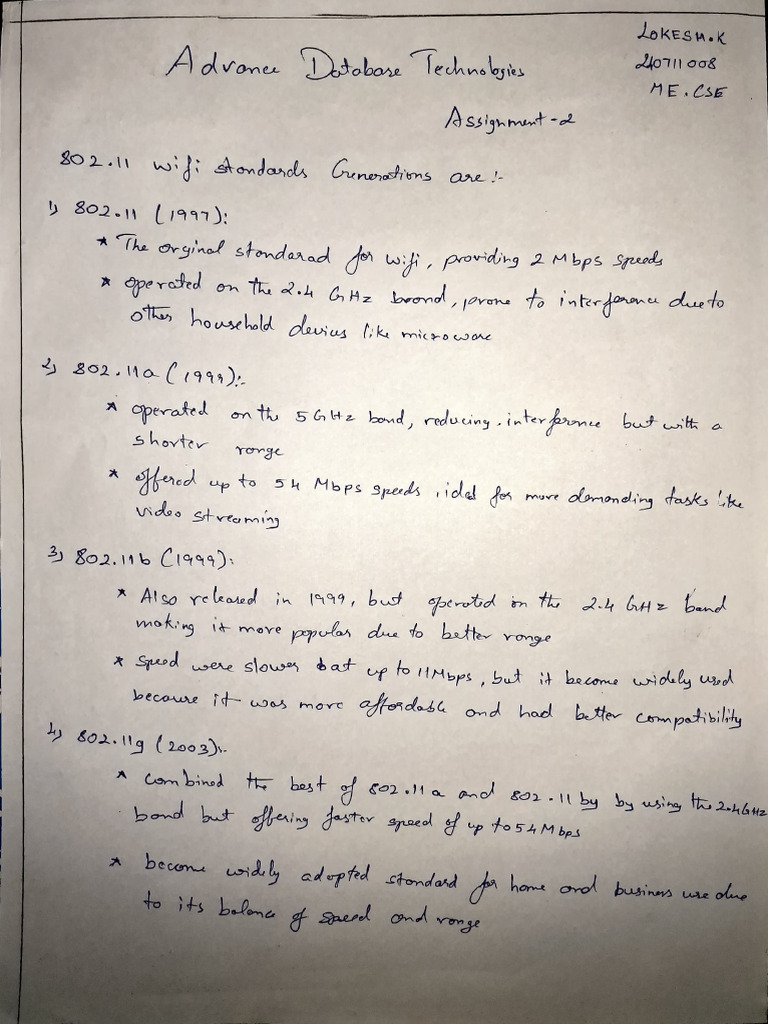 LOKESH.K
240711008
ME.CSE
Advance Database Technologies
Assignment-2
802.11 wifi standards Generations are:-
1) 802.11 (1997):
* The orginal standarad for wifi, providing 2 Mbps speeds
* operated on the 2.4 GHz boond, prone to interference due to
other household devius like microwave
2) 802.11a (1999):-
* operated on the 5GHz band, reducing interference but with a
shorter range
* offered up to 54 Mbps speeds, idel for more demanding tasks like
video streaming
3) 802.11b (1999):
* Also released in 1999, but operated on the 2.4 GHz band
making it more popular due to better range
* Speed were slower bat up to 11Mbps, but it become widely used
because it was more affordable and had better compatibility
4) 802.11g (2003):-
* combined the best of 802.11a and 802.11 by by using the 2.4GHz
band but offering faster speed of up to 54Mbps
* become widely adopted standard for home and business use due
to its balance of speed and range